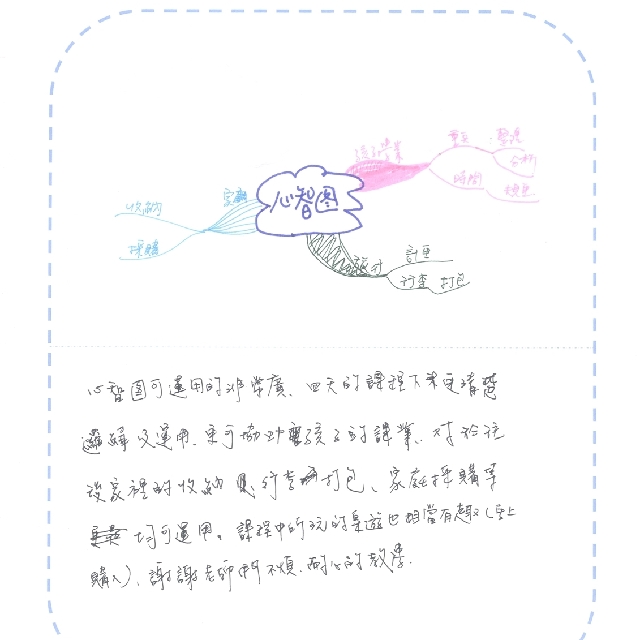 孩子課業
重點 整理
分析
時間 規畫
心智图
家庭
收納
採購
旅行
計画
行李 打包
心智图可運用的非常廣、四天的課程下來更清楚
邏輯及運用、更可協助孩子的課業、對於往
後家裡的收納及行李打包、家庭採購單
均可運用。課程中所玩的桌遊也相當有趣(馬上
購入)、謝謝老師們不煩、耐心的教學.